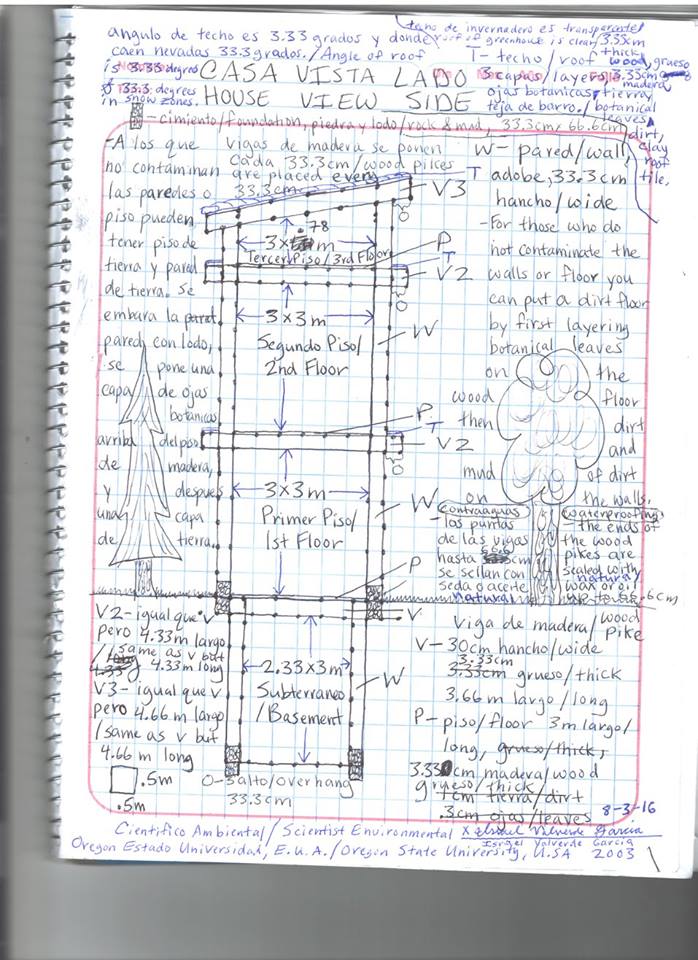 angulo de techo es 3.33 grados y donde
caen nevadas 33.3 grados. / Angle of roof
is 3.33 degres
o 33.3 degrees
in snow zones.
techo de invernadero es transparente/
roof of greenhouse is clear, 3.33cm
thick
T - techo/roof wood, grueso
3 capas/layers, 3.33cm
madera
ojas botanicas, tierra/
teja de barro./botanical
leaves,
dirt,
clay
roof
tile.
CASA VISTA LADO
HOUSE VIEW SIDE
- cimiento/foundation, piedra y lodo/rock & mud, 33.3cm, 66.6cm
- A los que
no contaminan
las paredes o
piso pueden
tener piso de
tierra y pared
de tierra. Se
embara la
pared con lodo,
se pone una
capa de ojas
botanicas
arriba del piso
de madera,
y despues
una capa
de tierra.
Vigas de madera se ponen
cada 33.3cm/wood pikes
are placed every
33.3cm
W - pared/wall,
adobe, 33.3cm
hancho/wide
- For those who do
not contaminate the
walls or floor you
can put a dirt floor
by first layering
botanical leaves
on the
wood floor
then dirt
and
mud of dirt
on the walls.
T
V3
O
.78
3x m
Tercer Piso/3rd Floor
P
T
V2
O
3x3m
Segundo Piso/
2nd Floor
W
P
T
V2
O
3x3m
Primer Piso/
1st Floor
W
P
V
2.33x3m
Subterraneo
/Basement
W
Contraaguas
- las puntas
de las vigas
hasta 66.6 cm
se sellan con
seda o aceite
natural
Waterproofing
- the ends of
the wood
pikes are
sealed with
natural
wax or oil
up to 66.6cm
V2 - igual que V
pero 4.33m largo
/same as v but
4.33m long
V3 - igual que V
pero 4.66m largo
/same as v but
4.66 m long
.5m
.5m
O - salto/overhang
33.3cm
Viga de madera/wood
Pike
V - 30cm hancho/wide
3.33cm
3.33cm grueso/thick
3.66m largo/long
P - piso/floor 3m largo/
long, grueso/thick,
3.33cm madera/wood
grueso/thick
1cm tierra/dirt
.3cm ojas/leaves
8-3-16
Cientifico Ambiental/Scientist Environmental x Israel Valverde Garcia
Israel Valverde Garcia
Oregon Estado Universidad, E.U.A./Oregon State University, U.SA 2003